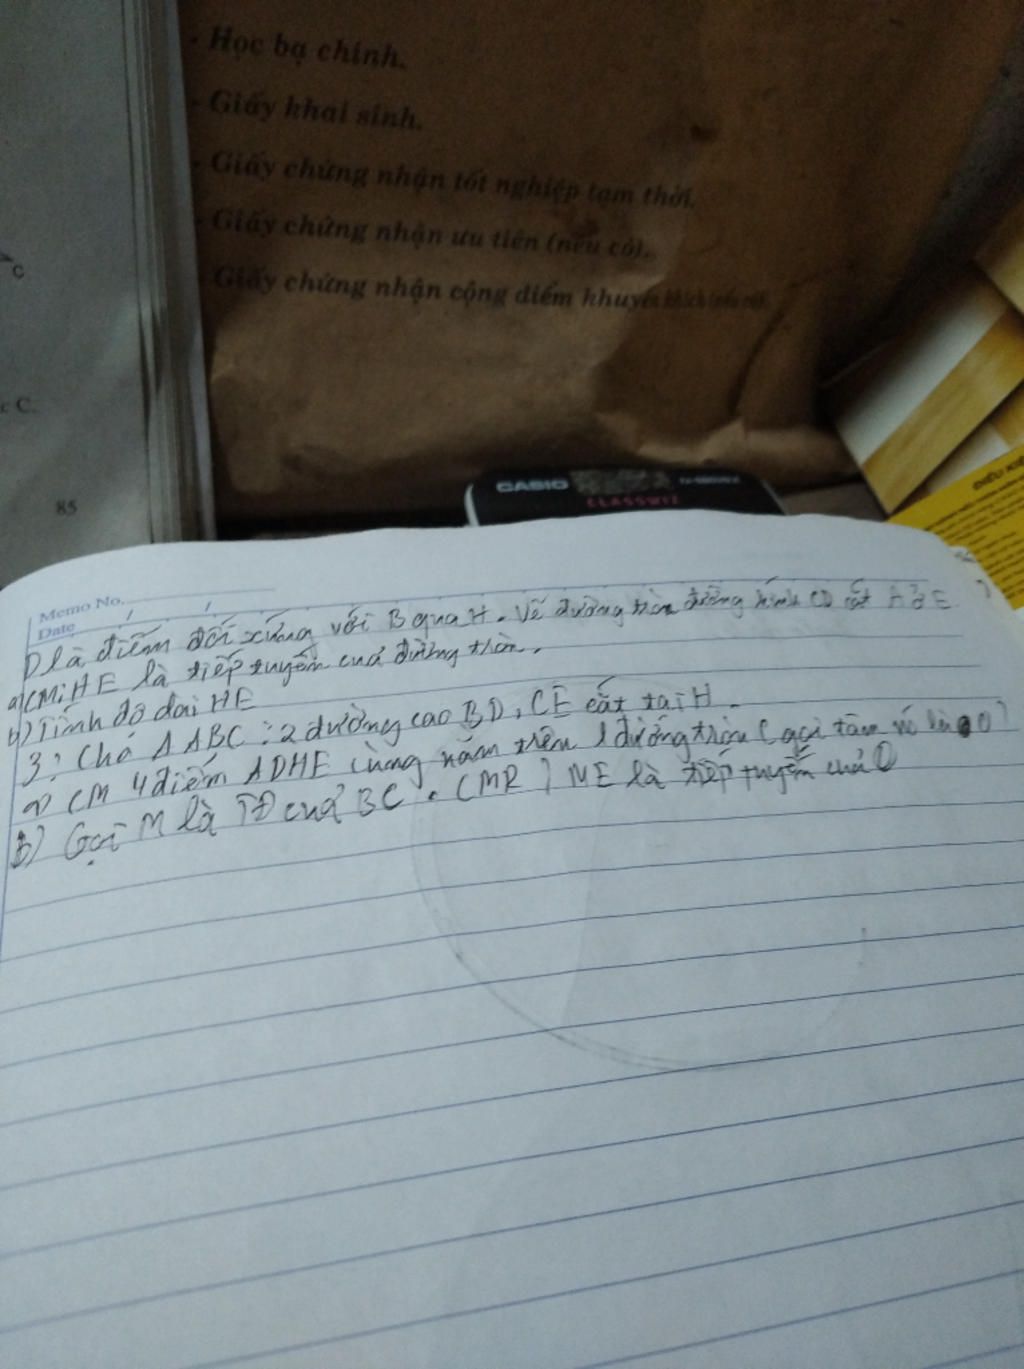 - Học bạ chính.
- Giấy khai sinh.
- Giấy chứng nhận tốt nghiệp tạm thời.
- Giấy chứng nhận ưu tiên (nếu có).
Giấy chứng nhận cộng điểm khuyến khích (nếu có).
C
c C.
85
CASIO
CLASSWIZ
ĐIỀU KIỆ
Memo No.
Date / /
D là điểm đối xứng với B qua H. Vẽ đường tròn đường kính CD cắt A ở E
a) CM: HE là tiếp tuyến cuả đường tròn.
b) Tính độ dài HE
3: Cho Δ ABC: 2 đường cao BD, CE cắt tại H.
a) CM 4 điểm ADHE cùng nằm trên 1 đường tròn (gọi tâm nó là O)
b) Gọi M là TĐ cuả BC. CMR) ME là tiếp tuyến cuả O